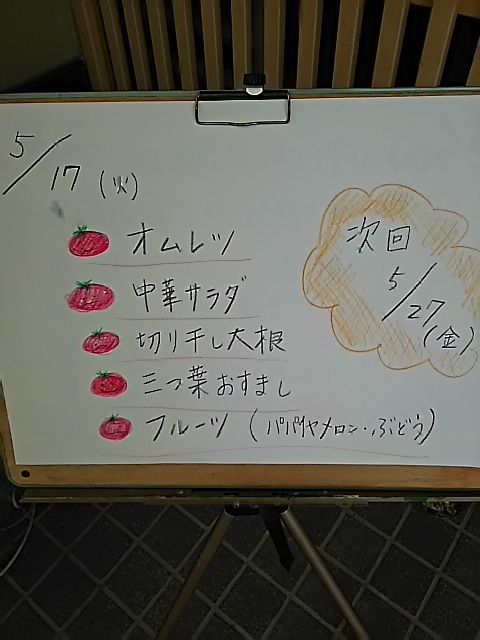 5/17(火)
オムレツ
中華サラダ
切り干し大根
三つ葉おすまし
フルーツ(パパイヤメロン・ぶどう)
次回
5/27
(金)